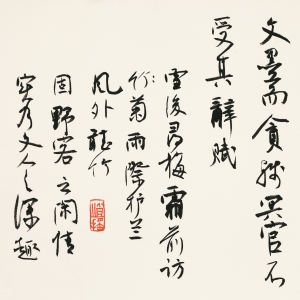 文墨而貪官不
受其辭賦
雪後尋梅霜前訪
竹菊雨際护兰
風外聽竹
固野客之閑情
実乃文人之深趣